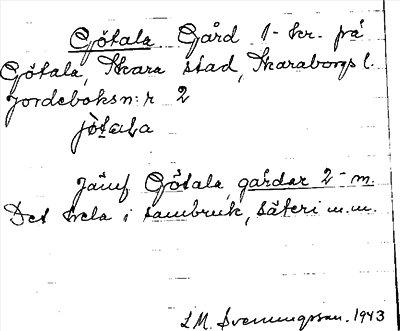 Götala Gård 1 kr. på
Götala, Skara stad, Skaraborgs l.
Jordeboksn:r 2
jö̀tala
Jämf Götala, gårdar 2 - m.
Det hela i sambruk, säteri m.m.
L.M. Svenungsson. 1943